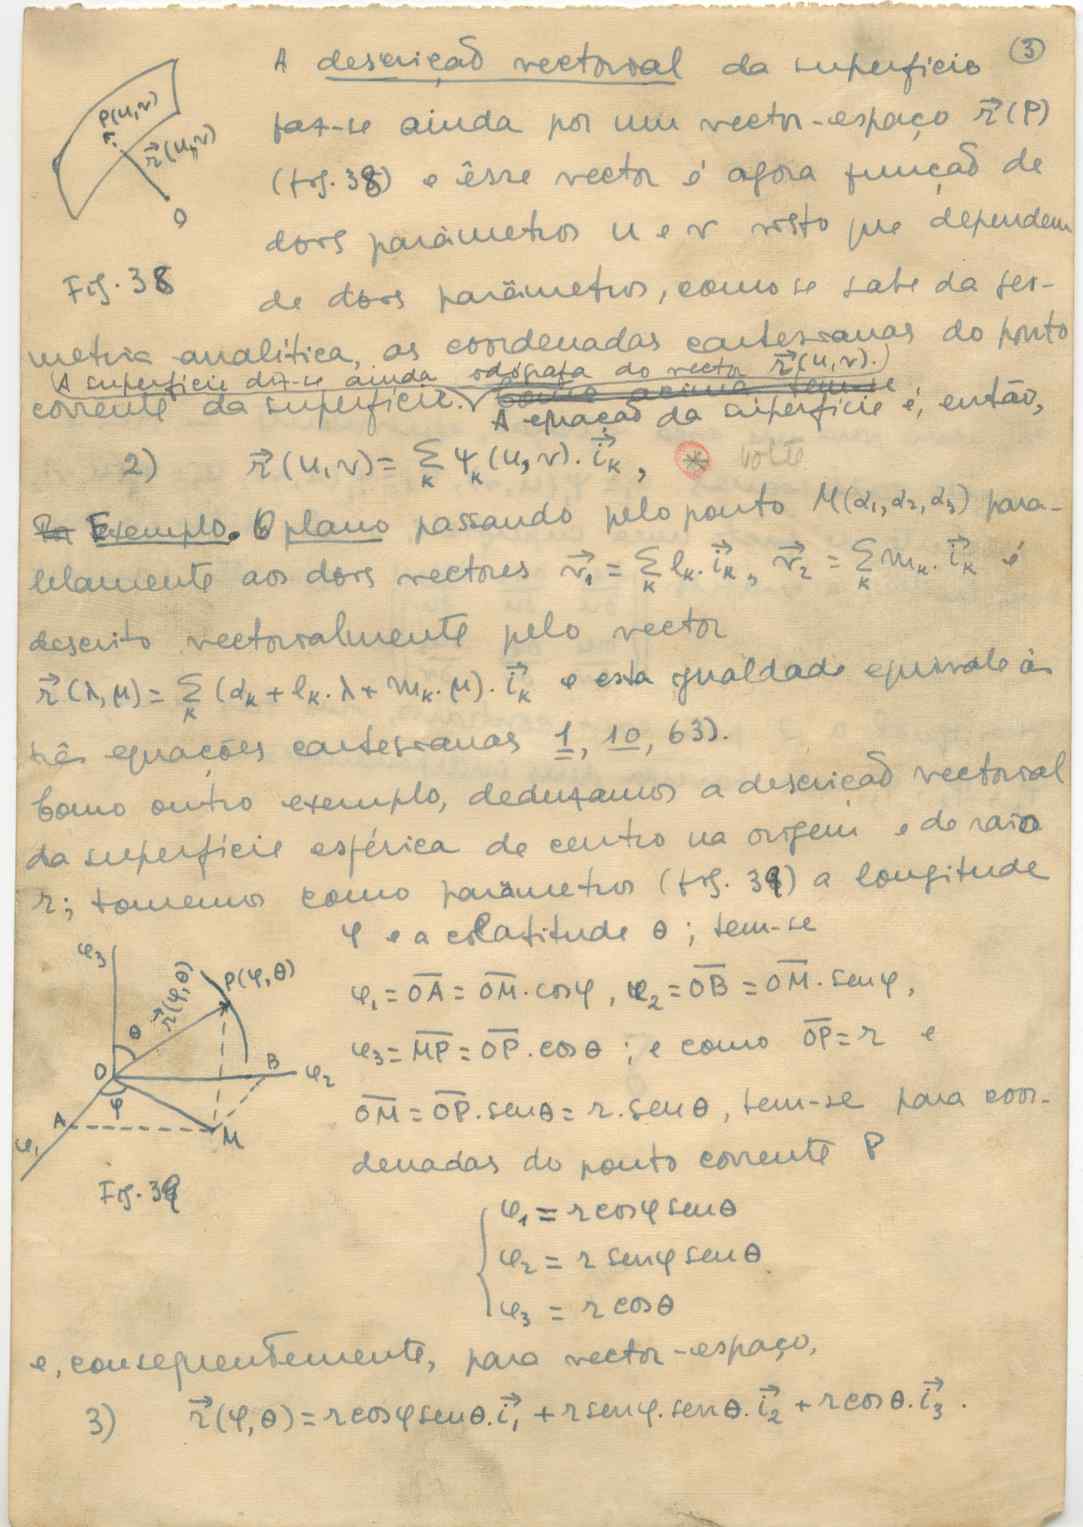 ③
A descrição vectorial da superfície
faz-se ainda por um vector-espaço r⃗(P)
(fig. 38) e êsse vector é agora função de
dois parâmetros u e v visto que dependem
de dois parâmetros, como se sabe da geo-
metria analítica, as coordenadas cartesianas do ponto
(A superfície diz-se ainda odógrafa do vector r⃗(u,v).)
corrente da superfície. A equação da superfície é, então,
P(u,v)
r⃗(u,v)
O
Fig. 38
2) r⃗(u,v) = Σ_k ψ_k(u,v). i⃗_k , * volte
Exemplo. O plano passando pelo ponto M(α₁,α₂,α₃) para-
lelamente aos dois vectores v⃗₁ = Σ_k l_k. i⃗_k, v⃗₂ = Σ_k m_k. i⃗_k é
descrito vectorialmente pelo vector
r⃗(λ,μ) = Σ_k (α_k + l_k. λ + m_k. μ). i⃗_k e esta igualdade equivale às
três equações cartesianas 1, 10, 63).
Como outro exemplo, deduzamos a descrição vectorial
da superfície esférica de centro na origem e de raio
r; tomemos como parâmetros (fig. 39) a longitude
φ e a colatitude θ; tem-se
φ₁ = OA̅ = OM̅. cosφ, φ₂ = OB̅ = OM̅. senφ,
φ₃ = MP̅ = OP̅. cosθ; e como OP̅ = r e
OM̅ = OP̅. senθ = r. senθ, tem-se para coor-
denadas do ponto corrente P
φ₃
r⃗(φ,θ)
P(φ,θ)
θ
O
B
φ₂
φ
A
M
φ₁
Fig. 39
φ₁ = r cosφ senθ
φ₂ = r senφ senθ
φ₃ = r cosθ
e, consequentemente, para vector-espaço,
3) r⃗(φ,θ) = r cosφ senθ. i⃗₁ + r senφ. senθ. i⃗₂ + r cosθ. i⃗₃.